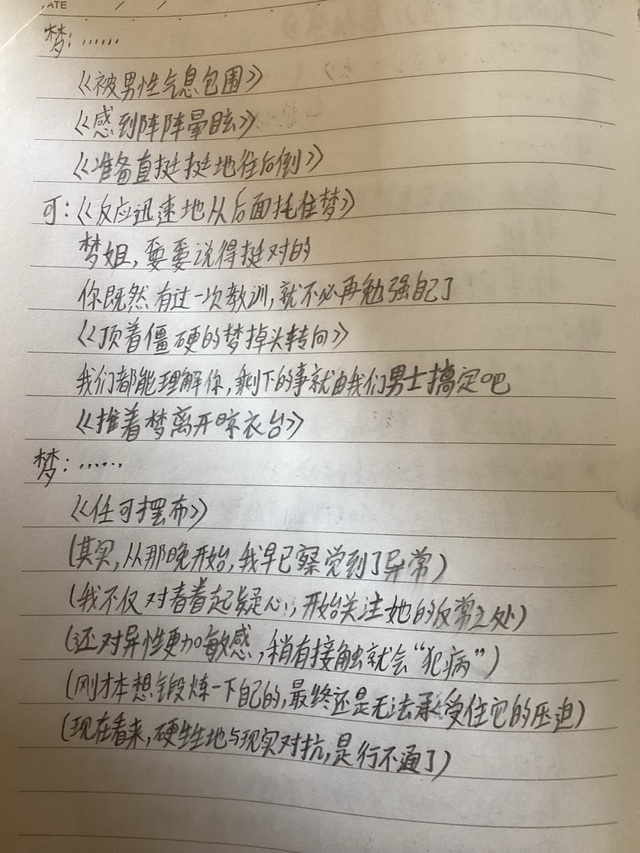 ATE / /
梦:……
《被男性气息包围》
《感到阵阵晕眩》
《准备直挺挺地往后倒》
可:《反应迅速地从后面托住梦》
梦姐,要要说得挺对的
你既然有过一次教训,就不必再勉强自己了
《顶着僵硬的梦掉头转向》
我们都能理解你,剩下的事就由我们男士搞定吧
《推着梦离开晾衣台》
梦:……
《任可摆布》
(其实,从那晚开始,我早已察觉到了异常)
(我不仅对春春起疑心,开始关注她的反常之处)
(还对异性更加敏感,稍有接触就会“犯病”)
(刚才本想锻炼一下自己的,最终还是无法承受住它的压迫)
(现在看来,硬生生地与现实对抗,是行不通了)